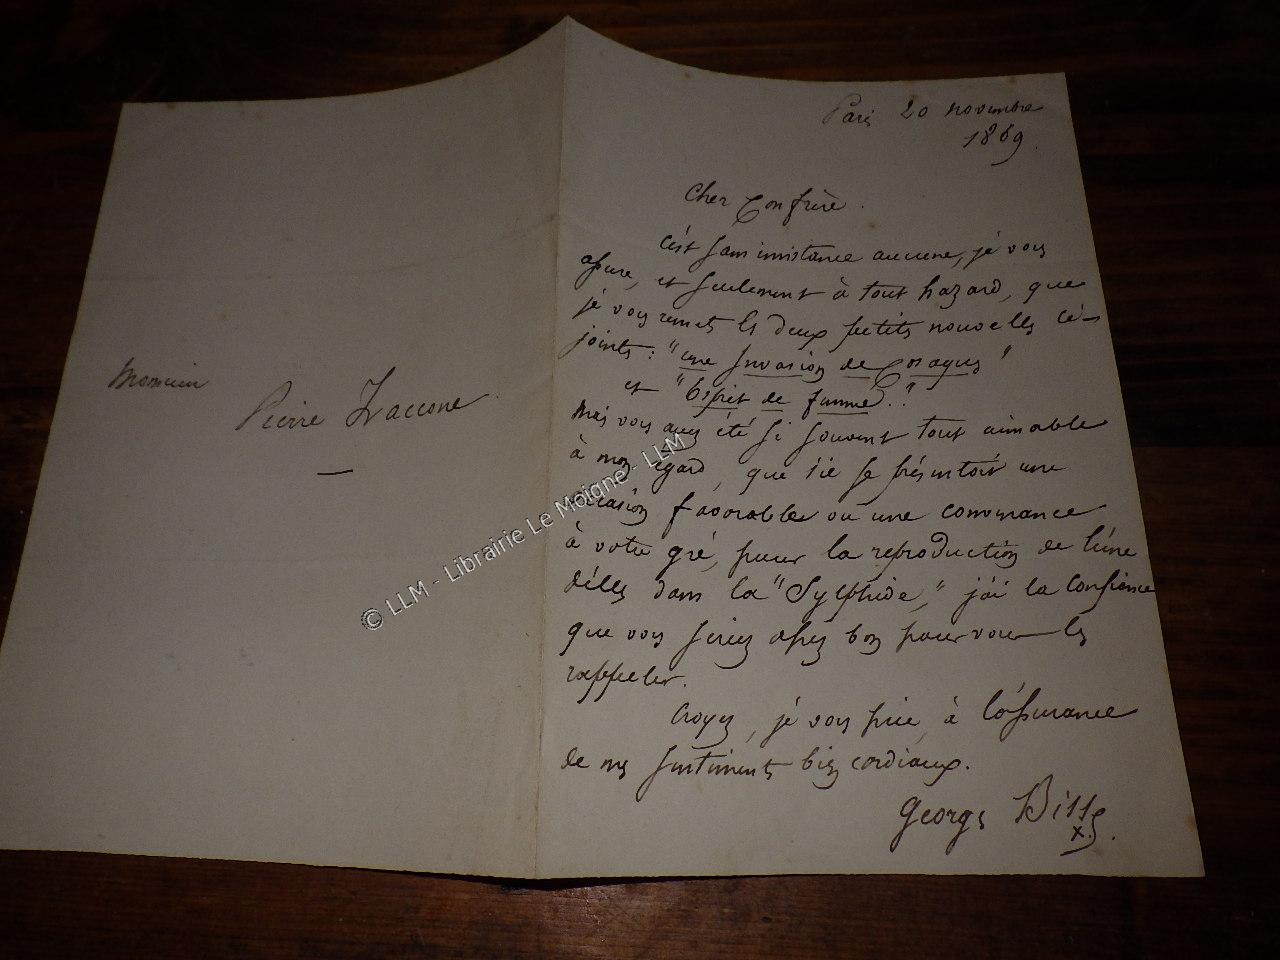 Monsieur
Pierre Zaccone
Paris 20 novembre
1869
Cher Confrère.
C'est sans insistance aucune, je vous
assure, et seulement à tout hazard, que
je vous remets les deux petites nouvelles ci-
jointes : "une Invasion de Cosaques"
et "Esprit de femme."
Mais vous avez été si souvent tout aimable
à mon égard, que s'il se présentait une
occasion favorable ou une convenance
à votre gré, pour la reproduction de l'une
d'elles dans la "Sylphide," j'ai la confiance
que vous seriez assez bon pour vous les
rappeler.
Croyez, je vous prie, à l'assurance
de mes sentiments bien cordiaux.
Georges
© LLM - Librairie Le Moigne - LLM